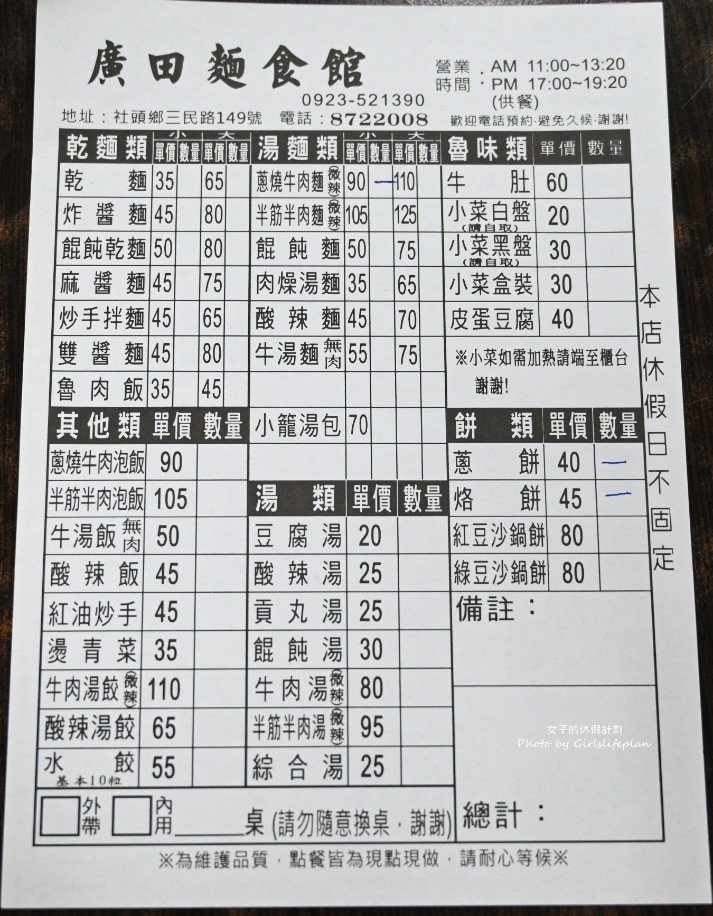 廣田麵食館
營業時間:AM 11:00~13:20
PM 17:00~19:20
(供餐)
0923-521390
地址:社頭鄉三民路149號 電話:8722008 歡迎電話預約.避免久候.謝謝!
乾麵類 小 單價 數量 大 單價 數量
乾麵 35 65
炸醬麵 45 80
餛飩乾麵 50 80
麻醬麵 45 75
炒手拌麵 45 65
雙醬麵 45 80
魯肉飯 35 45
湯麵類 小 單價 數量 大 單價 數量
蔥燒牛肉麵(微辣) 90 一 110
半筋半肉麵(微辣) 105 125
餛飩麵 50 75
肉燥湯麵 35 65
酸辣麵 45 70
牛湯麵無肉 55 75
小籠湯包 70
魯味類 單價 數量
牛肚 60
小菜白盤(請自取) 20
小菜黑盤(請自取) 30
小菜盒裝 30
皮蛋豆腐 40
※小菜如需加熱請端至櫃台
謝謝!
其他類 單價 數量
蔥燒牛肉泡飯 90
半筋半肉泡飯 105
牛湯飯無肉 50
酸辣飯 45
紅油炒手 45
燙青菜 35
牛肉湯餃(微辣) 110
酸辣湯餃 65
水餃 基本10粒 55
湯類 單價 數量
豆腐湯 20
酸辣湯 25
貢丸湯 25
餛飩湯 30
牛肉湯(微辣) 80
半筋半肉湯(微辣) 95
綜合湯 25
餅類 單價 數量
蔥餅 40 一
烙餅 45 一
紅豆沙鍋餅 80
綠豆沙鍋餅 80
備註:
總計:
本店休假日不固定
外帶 內用______桌(請勿隨意換桌.謝謝)
※為維護品質.點餐皆為現點現做.請耐心等候※
女子的休假計劃
Photo by Girlslifeplan